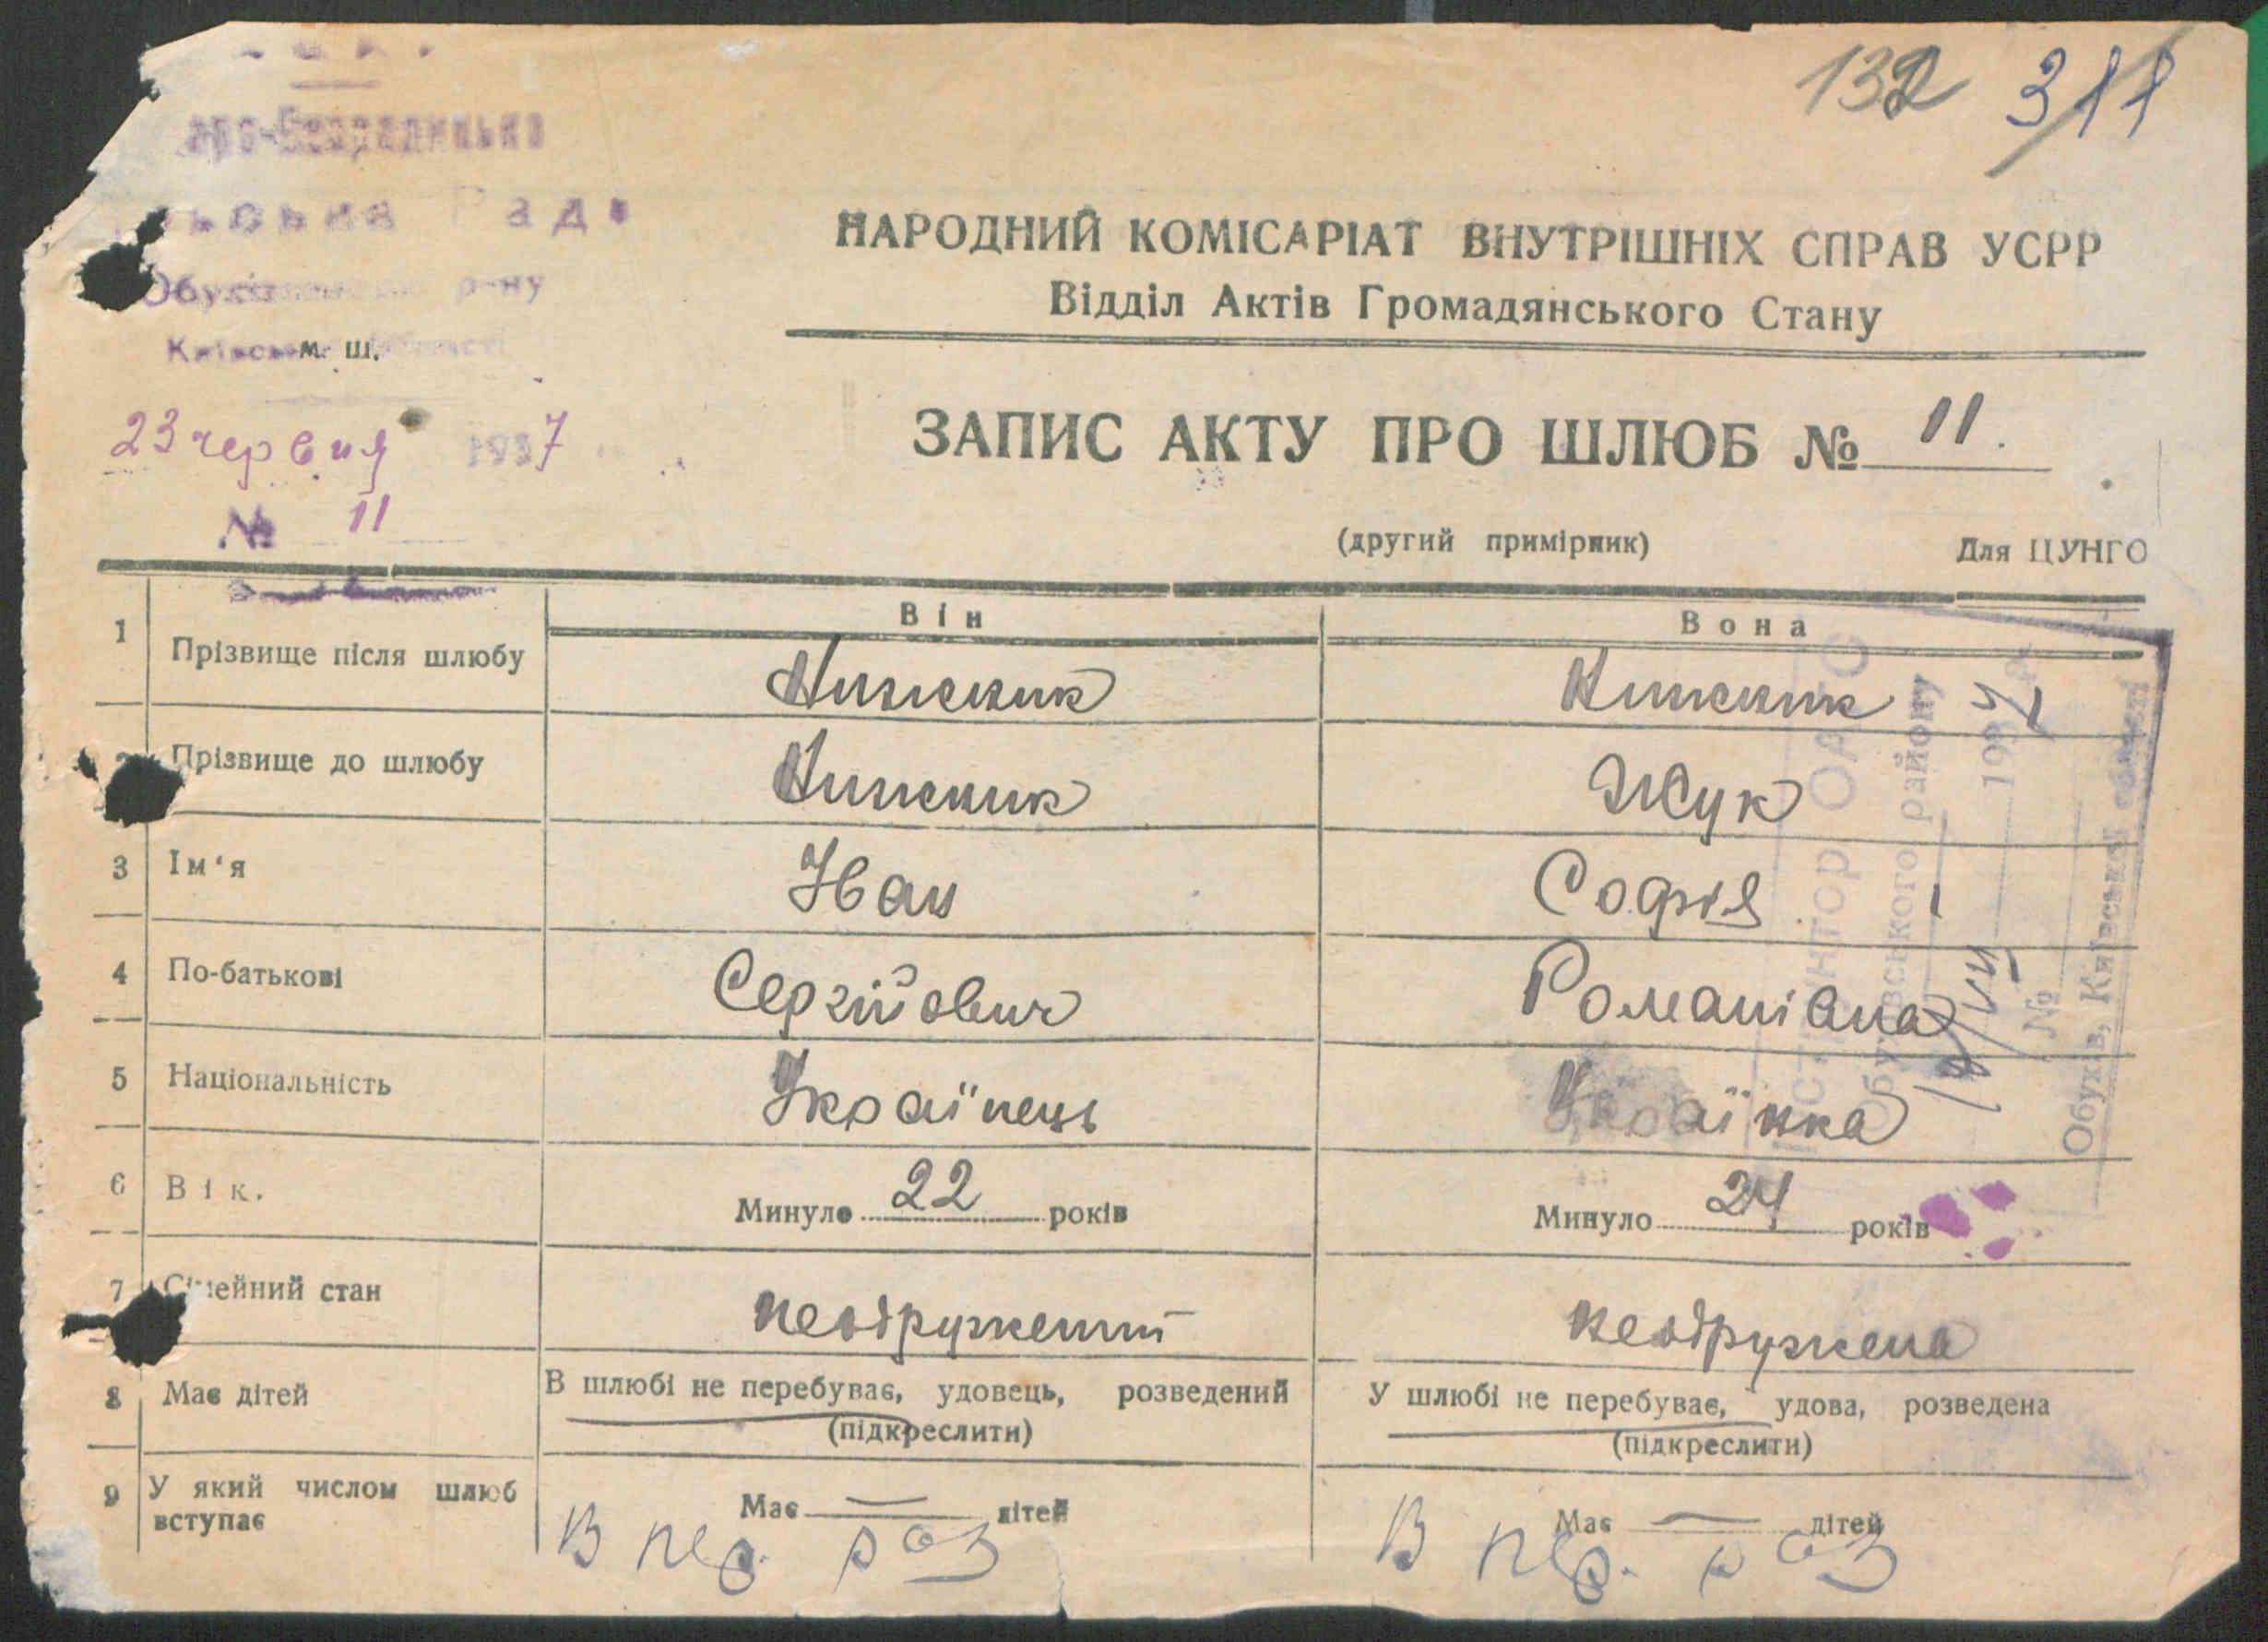 132 311
Рад
Обух р-ну
м. ш.
23 червня 1937
№ 11
НАРОДНИЙ КОМІСАРІАТ ВНУТРІШНІХ СПРАВ УСРР
Відділ Актів Громадянського Стану
ЗАПИС АКТУ ПРО ШЛЮБ № 11.
(другий примірник) Для ЦУНГО
Він Вона
1 Прізвище після шлюбу Нижник Нижник
2 Прізвище до шлюбу Нижник Жук
3 Ім'я Іван Софія
4 По-батькові Сергійович Романівна
5 Національність Українець Українка
6 Вік. Минуло 22 років Минуло 24 років
7 Сімейний стан неодружений неодружена
8 Має дітей В шлюбі не перебуває, удовець, розведений У шлюбі не перебуває, удова, розведена
(підкреслити) (підкреслити)
9 У який числом шлюб вступає Має — дітей Має — дітей
В пер. раз В пер. раз
Інспектор ОАГС
Обухівського району
193 р.
№
Обухів, Київської області